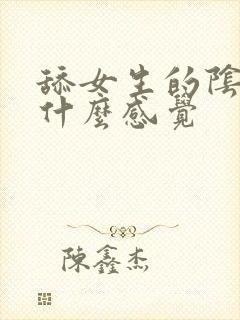 舔女生的陰
什麼感覺
陳鑫杰